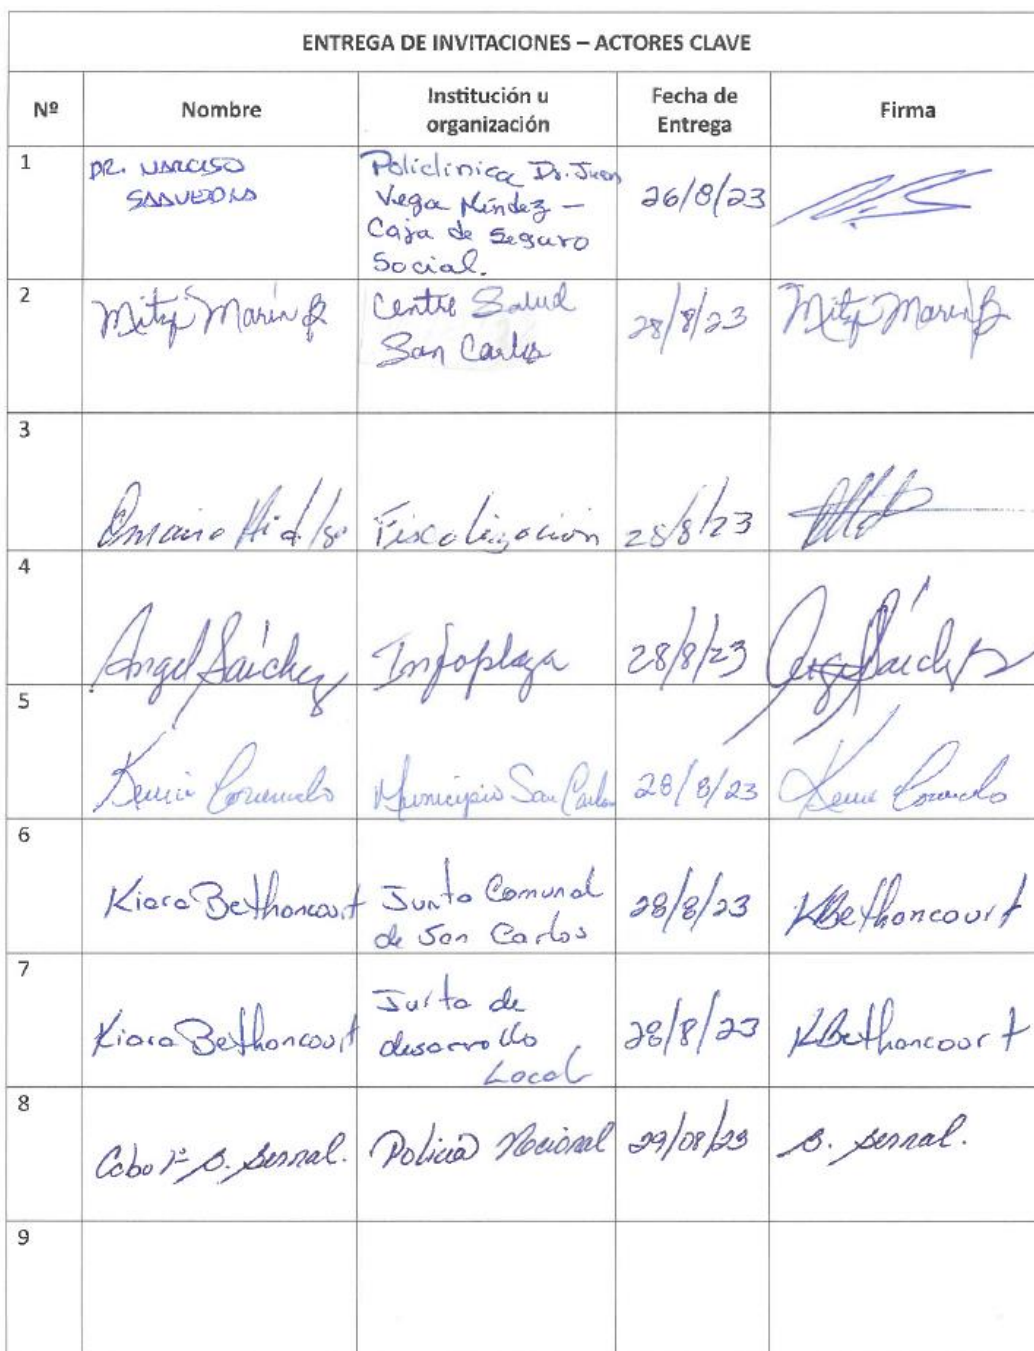 ENTREGA DE INVITACIONES – ACTORES CLAVE
Nº Nombre Institución u organización Fecha de Entrega Firma
1 DR. NARCISO SAAVEDRA Policlinica Dr. Juan Vega Méndez – Caja de Seguro Social. 26/8/23
2 Mitzi Marín B Centro Salud San Carlos 28/8/23 Mitzi Marín B
3 Omaira Hidalgo Fiscalización 28/8/23
4 Angel Sánchez Infoplaza 28/8/23 Angel Sánchez
5 Municipio San Carlos 28/8/23
6 Kiara Bethancourt Junta Comunal de San Carlos 28/8/23 KBethancourt
7 Kiara Bethancourt Junta de desarrollo Local 28/8/23 KBethancourt
8 Cabo 1º B. Bernal. Policía Nacional 29/08/23 B. Bernal.
9